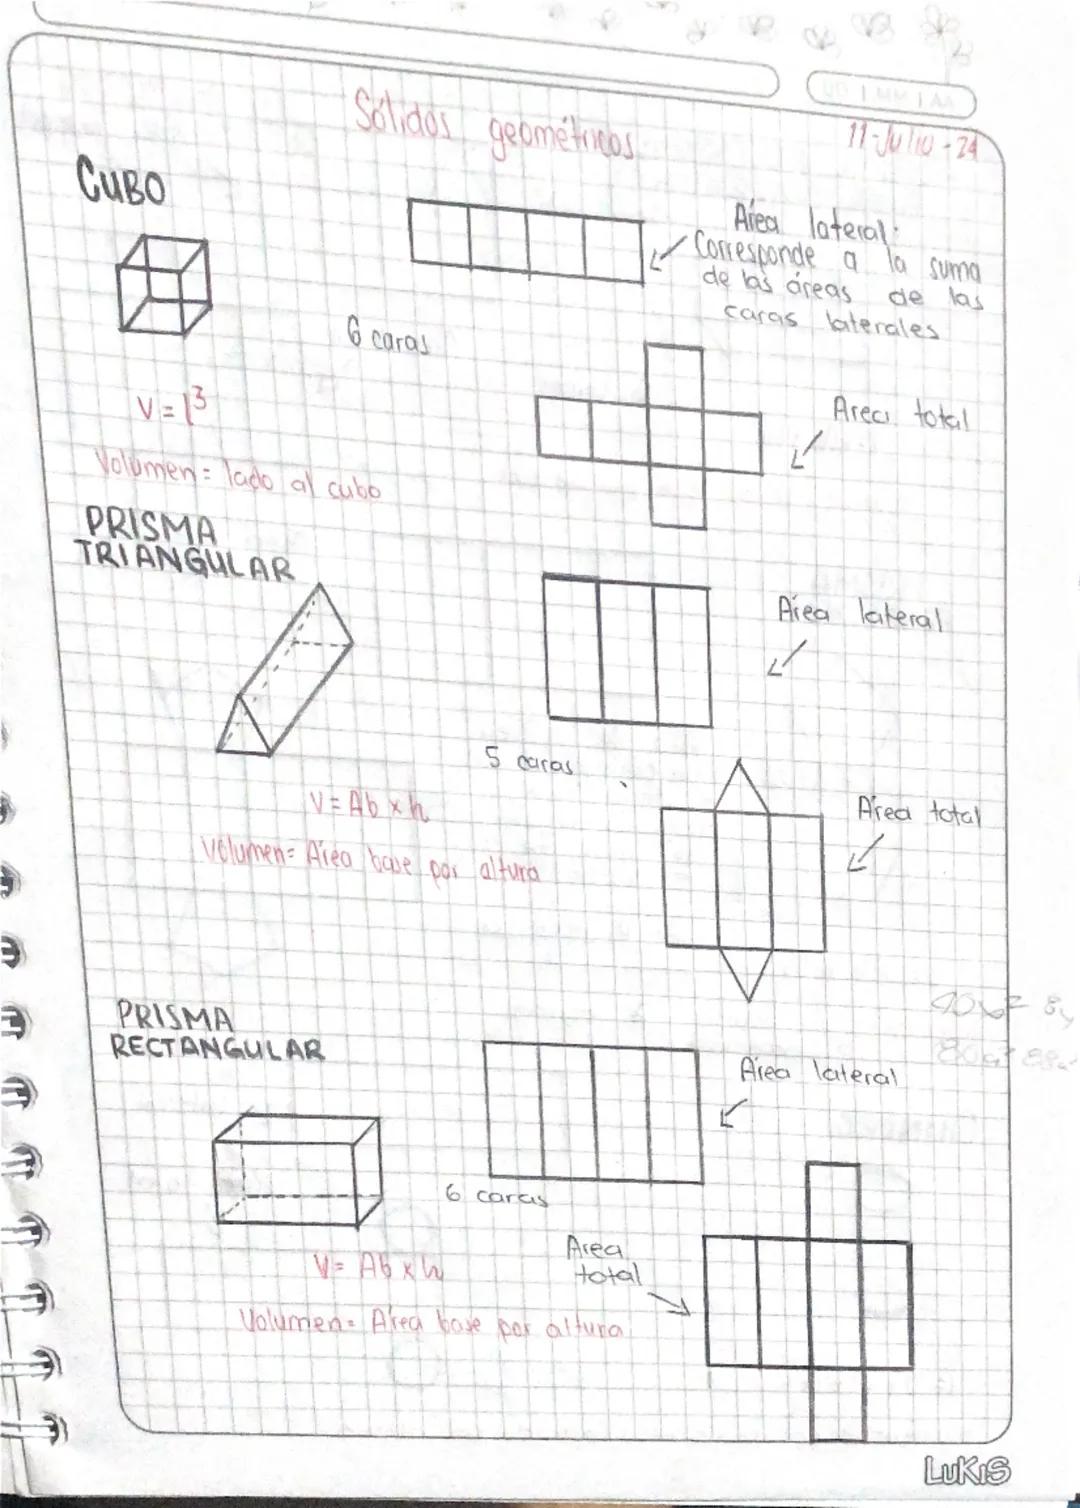 Sólidos geométricos
11-Julio-24
CUBO
Área lateral:
Corresponde a la suma
de las áreas de las
caras laterales
6 caras
V = l³
Area total
Volumen = lado al cubo
PRISMA
TRIANGULAR
Área lateral
5 caras
V = Ab x h
Área total
Volumen = Área base por altura
PRISMA
RECTANGULAR
Área lateral
6 caras
Area
total
V = Ab x h
Volumen = Área base por altura
LuKiS